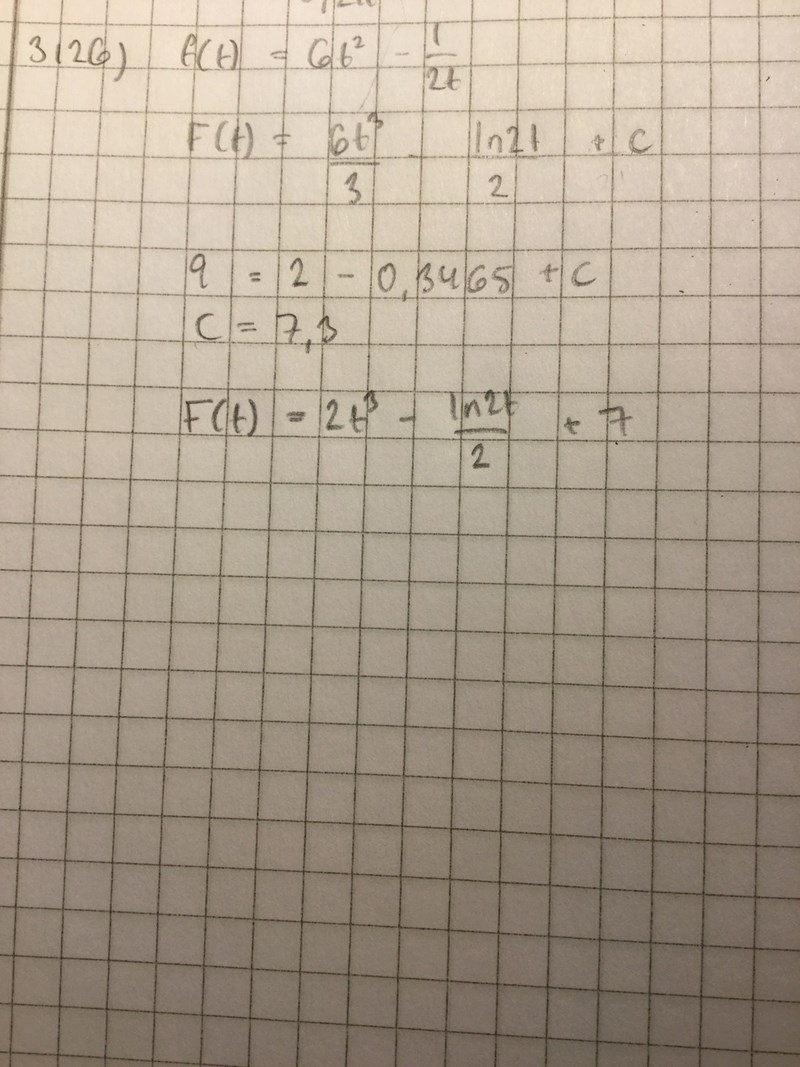 3126) f(t) = 6t² - 1/2t
F(t) = 6t³/3 - ln2t/2 + C
9 = 2 - 0,3465 + C
C = 7,3
F(t) = 2t³ - ln2t/2 + 7